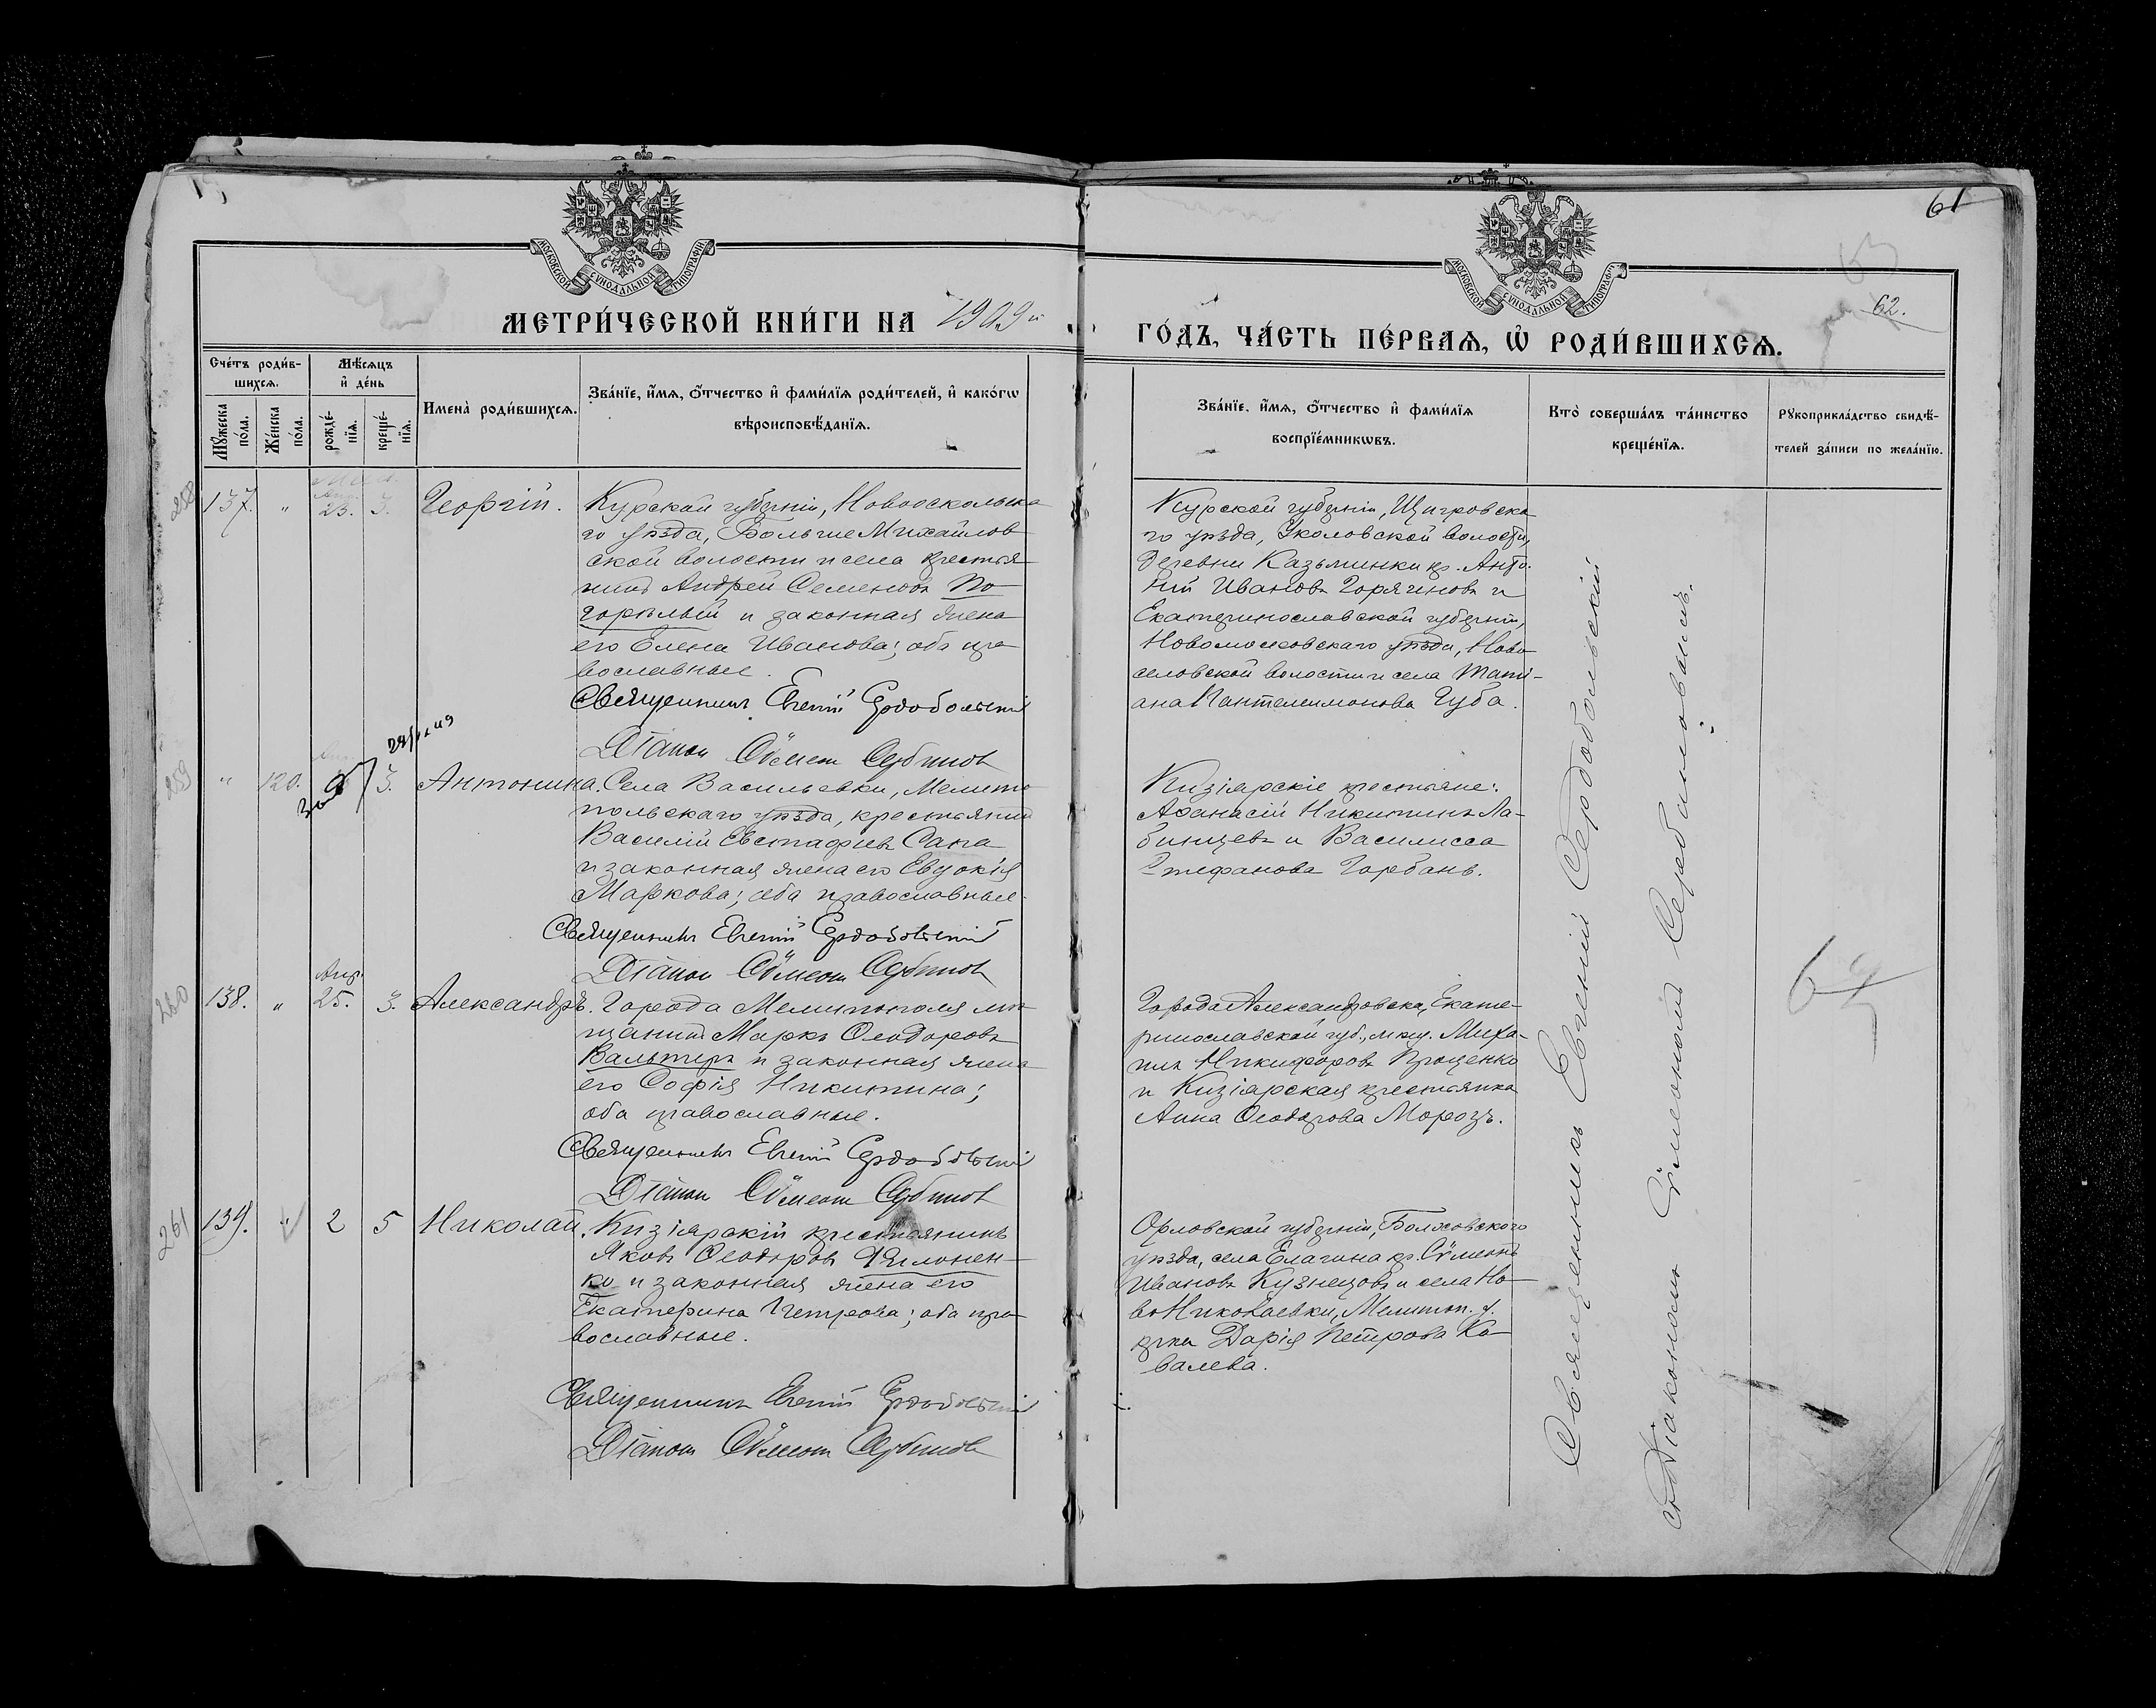 61
62.
МОСКОВСКОЙ СУНОДАЛЬНОЙ ТИПОГРАФІИ
МОСКОВСКОЙ СУНОДАЛЬНОЙ ТИПОГРАФІИ
МЕТРИ́ЧЕСКОЙ КНИ́ГИ НА 1909й
ГО́ДЪ, ЧА́СТЬ ПЕ́РВАѦ, Ѡ҆ РОДИ́ВШИХСѦ.
Сче́тъ роди́в-
шихсѧ.
Мѣ́сѧцъ
и҆ де́нь
Мꙋ́жеска
по́ла.
Же́нска
по́ла.
рожде́-
нїѧ.
креще́-
нїѧ.
Имена̀ роди́вшихсѧ.
Зва́нїе, и҆́мѧ, ѻ҆́тчество и҆ фами́лїѧ роди́телей, и҆ како́гѡ
вѣроисповѣ́данїѧ.
Зва́нїе, и҆́мѧ, ѻ҆́тчество и҆ фами́лїѧ
воспрїе́мникѡвъ.
Кто̀ соверша́лъ та́инство
креще́нїѧ.
Рꙋкоприкла́дство свидѣ́-
телей за́писи по жела́нїю.
258
137. " Апр. 23. 3. Георгій.
Курской губерніи, Новооскольска
го уѣзда, Больше Михайлов
ской волости и села крестья
нинъ Андрей Семеновъ По
горѣлый и законная жена
его Елена Иванова; оба пра
вославные.
Священникъ Евгеній Сердобольскій
Діаконъ Сѵмеонъ Сербиновъ
Курской губерніи, Щигровска
го уѣзда, Уколовской волости,
деревни Казьминки кр. Анто-
ній Ивановъ Горягиновъ и
Екатеринославской губерніи,
Новомосковскаго уѣзда, Ново
селовской волости и села Тати-
ана Пантелеимонова Губа.
259
" 120. 3. Антонина.
Села Васильевки, Мелито
польскаго уѣзда, крестьянинъ
Василій Евстафіевъ Сата
и законная жена его Евдокія
Маркова; оба православные.
Священникъ Евгеній Сердобольскій
Діаконъ Сѵмеонъ Сербиновъ
Кизіярскіе крестьяне:
Аѳанасій Никитинъ Ла-
бинцевъ и Василисса
Стефанова Горбань.
260
138. " Апр. 25. 3. Александръ.
Города Мелитополя мѣ
щанинъ Маркъ Ѳеодоровъ
Вальтеръ и законная жена
его Софія Никитина;
оба православные.
Священникъ Евгеній Сердобольскій
Діаконъ Сѵмеонъ Сербиновъ
Города Александровска, Екате-
ринославской губ., мѣщ. Миха-
илъ Никифоровъ Проценко
и Кизіярская крестьянка
Анна Ѳеодорова Морозъ.
261
139. " 2 5 Николай.
Кизіярскій крестьянинъ
Яковъ Ѳеодоровъ Филонен-
ко и законная жена его
Екатерина Петрова; оба пра
вославные.
Священникъ Евгеній Сердобольскій
Діаконъ Сѵмеонъ Сербиновъ
Орловской губерніи, Болховского
уѣзда, села Елагина кр. Сѵмеонъ
Ивановъ Кузнецовъ и села Но-
во Николаевки, Мелитоп. у.
кр-ка Дарія Петрова Ко-
валева.
Священникъ Евгеній Сердобольскій
съ Діакономъ Сѵмеономъ Сербиновымъ.